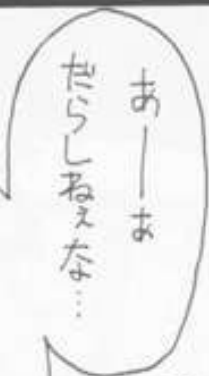 あーぁ
だらしねぇな…